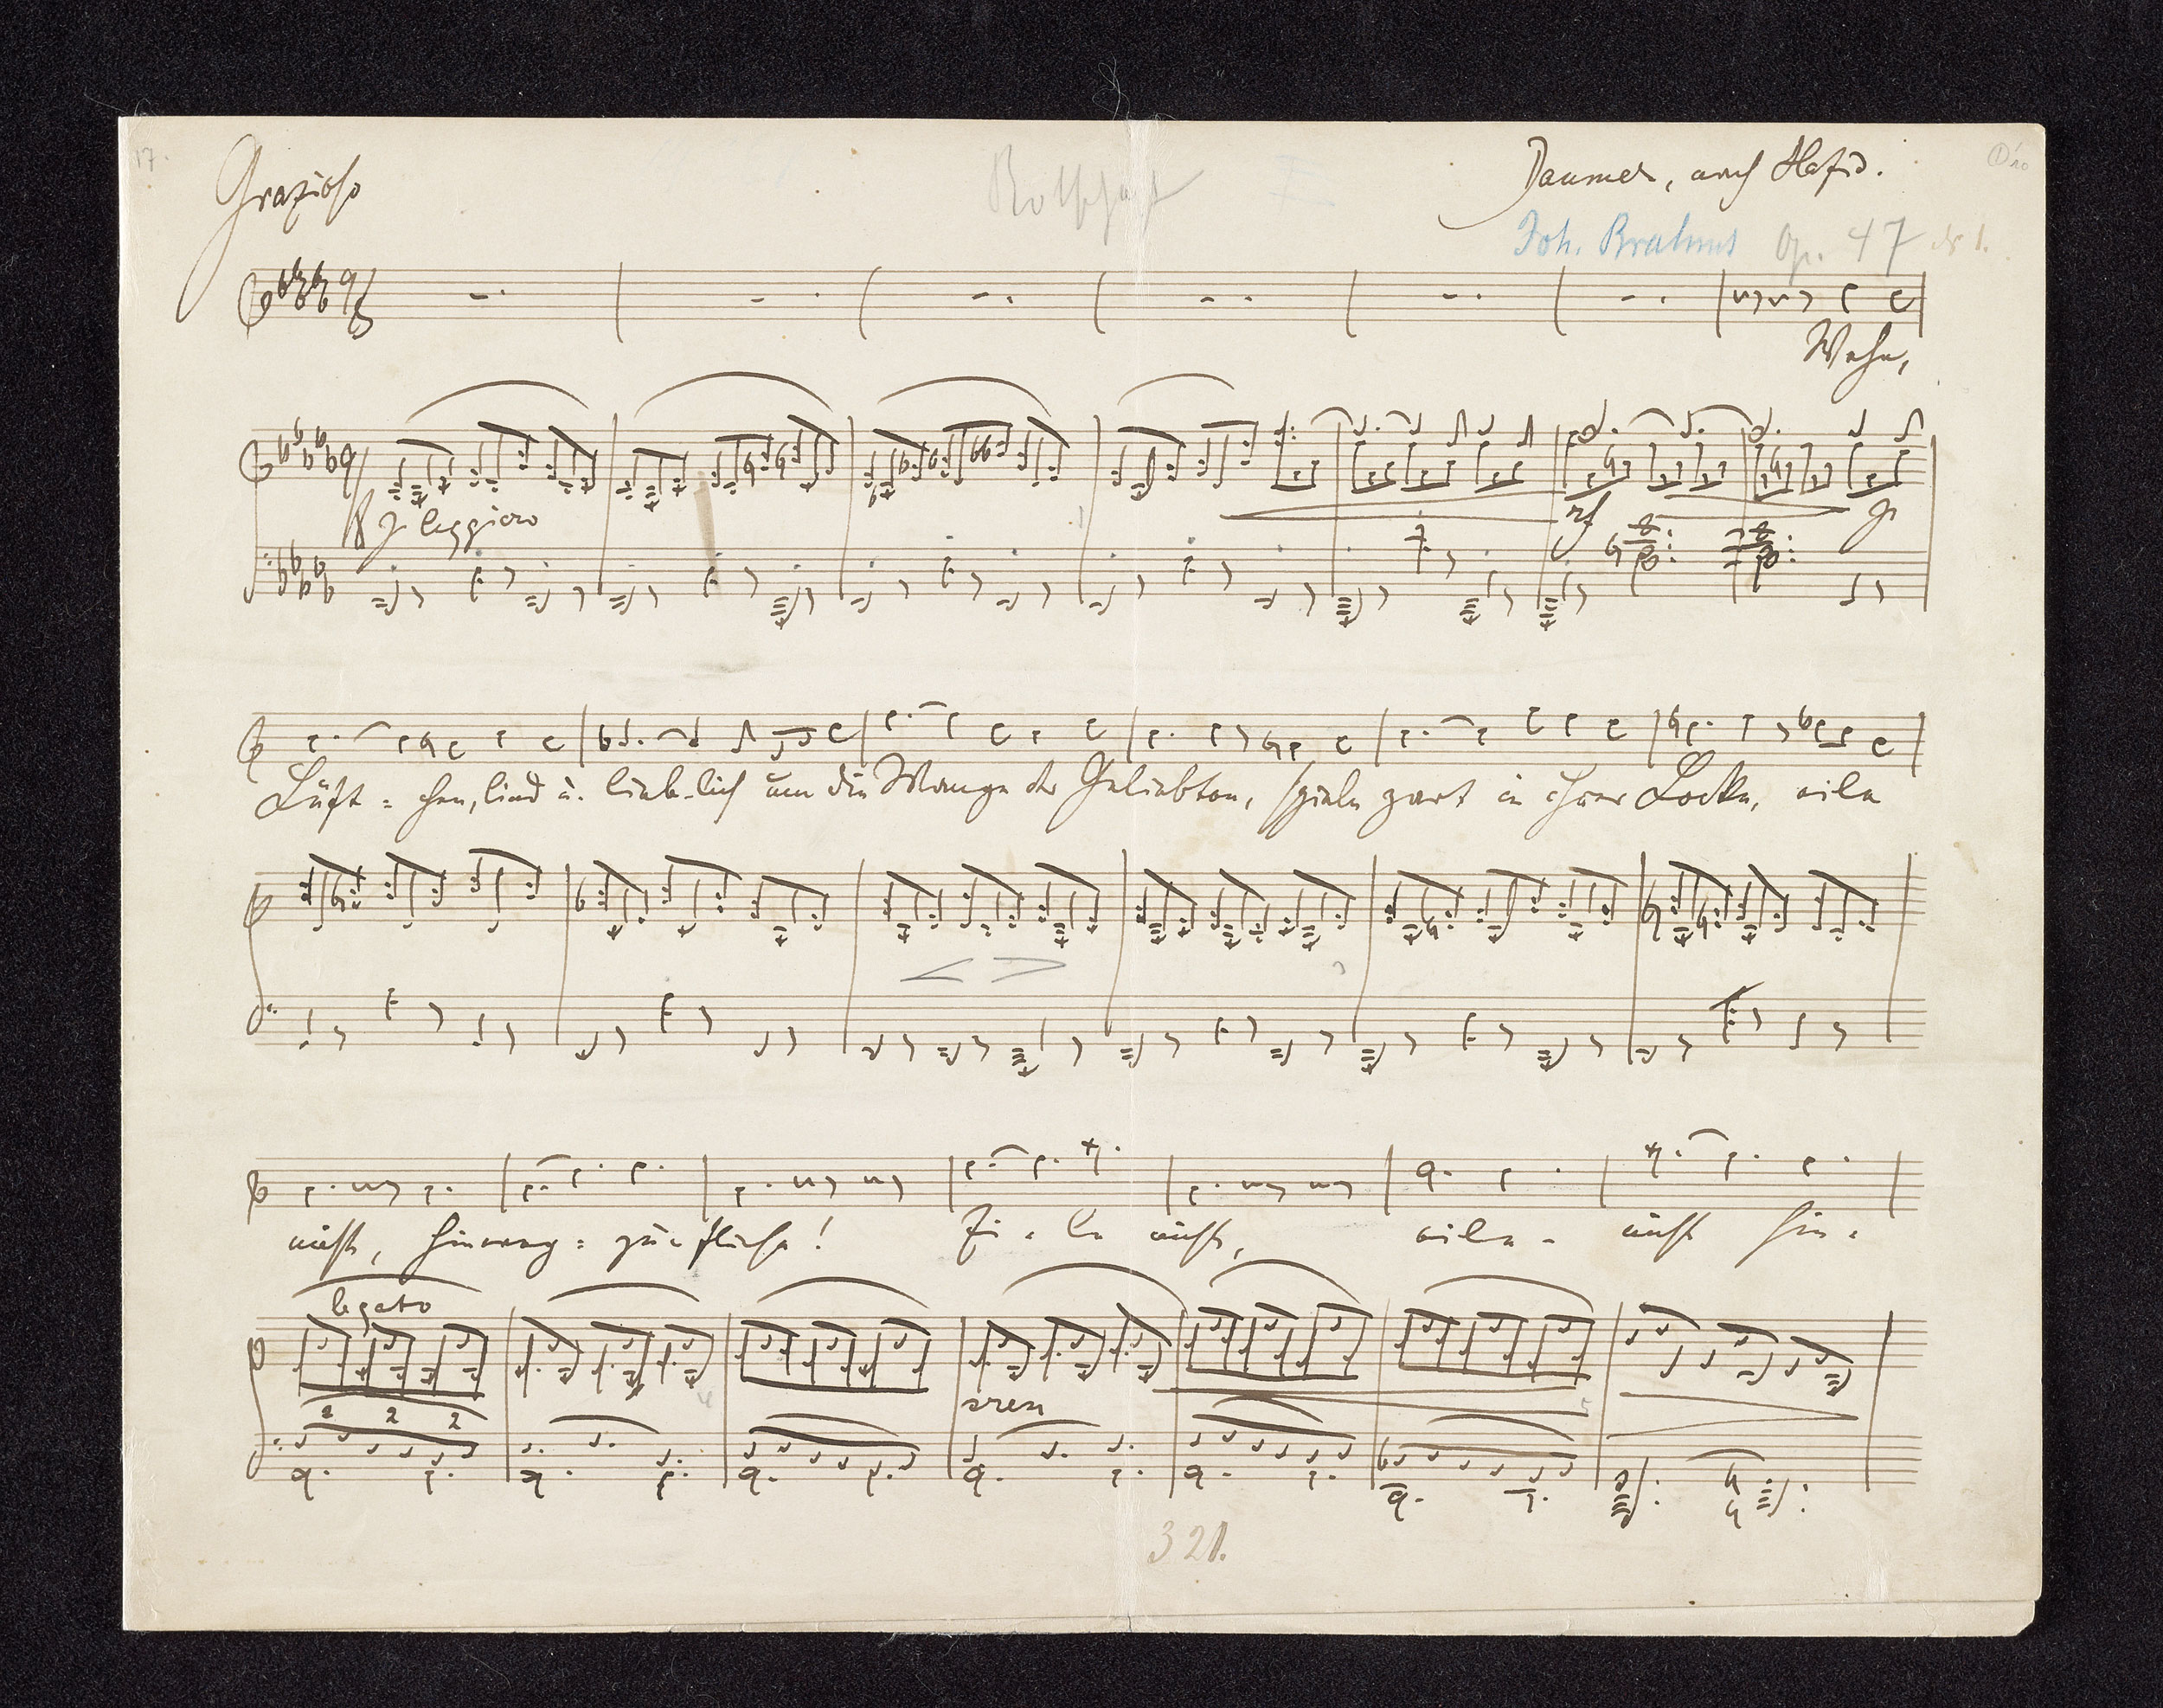 17.
Grazioso
Botschaft I
Daumer, nach Hafis.
Joh. Brahms Op. 47 № 1.
Wehe,
p leggiero
rf
p
Lüft = chen, lind u. lieb-lich um die Wange der Geliebten, spiele zart in ihrer Locke, eile
nicht, hinweg = zu = fliehn!
Ei = le nicht,
eile - nicht hin =
legato
2 2 2
cresc
321.